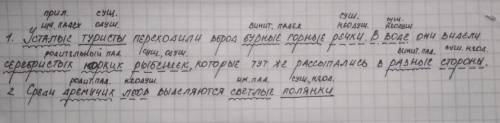 прил. сущ. винит. падеж сущ. сущ.
им. падеж одуш. неодуш. неодуш.
1. Усталые туристы переходили вброд бурные горные речки. В воде они видели
родительный пад. сущ., одуш. винит. пад. сущ. неод.
серебристых юрких рыбешек, которые тут же рассыпались в разные стороны.
родит. пад. неодуш. им. пад. сущ., неод.
2 Среди дремучих лесов выделяются светлые полянки